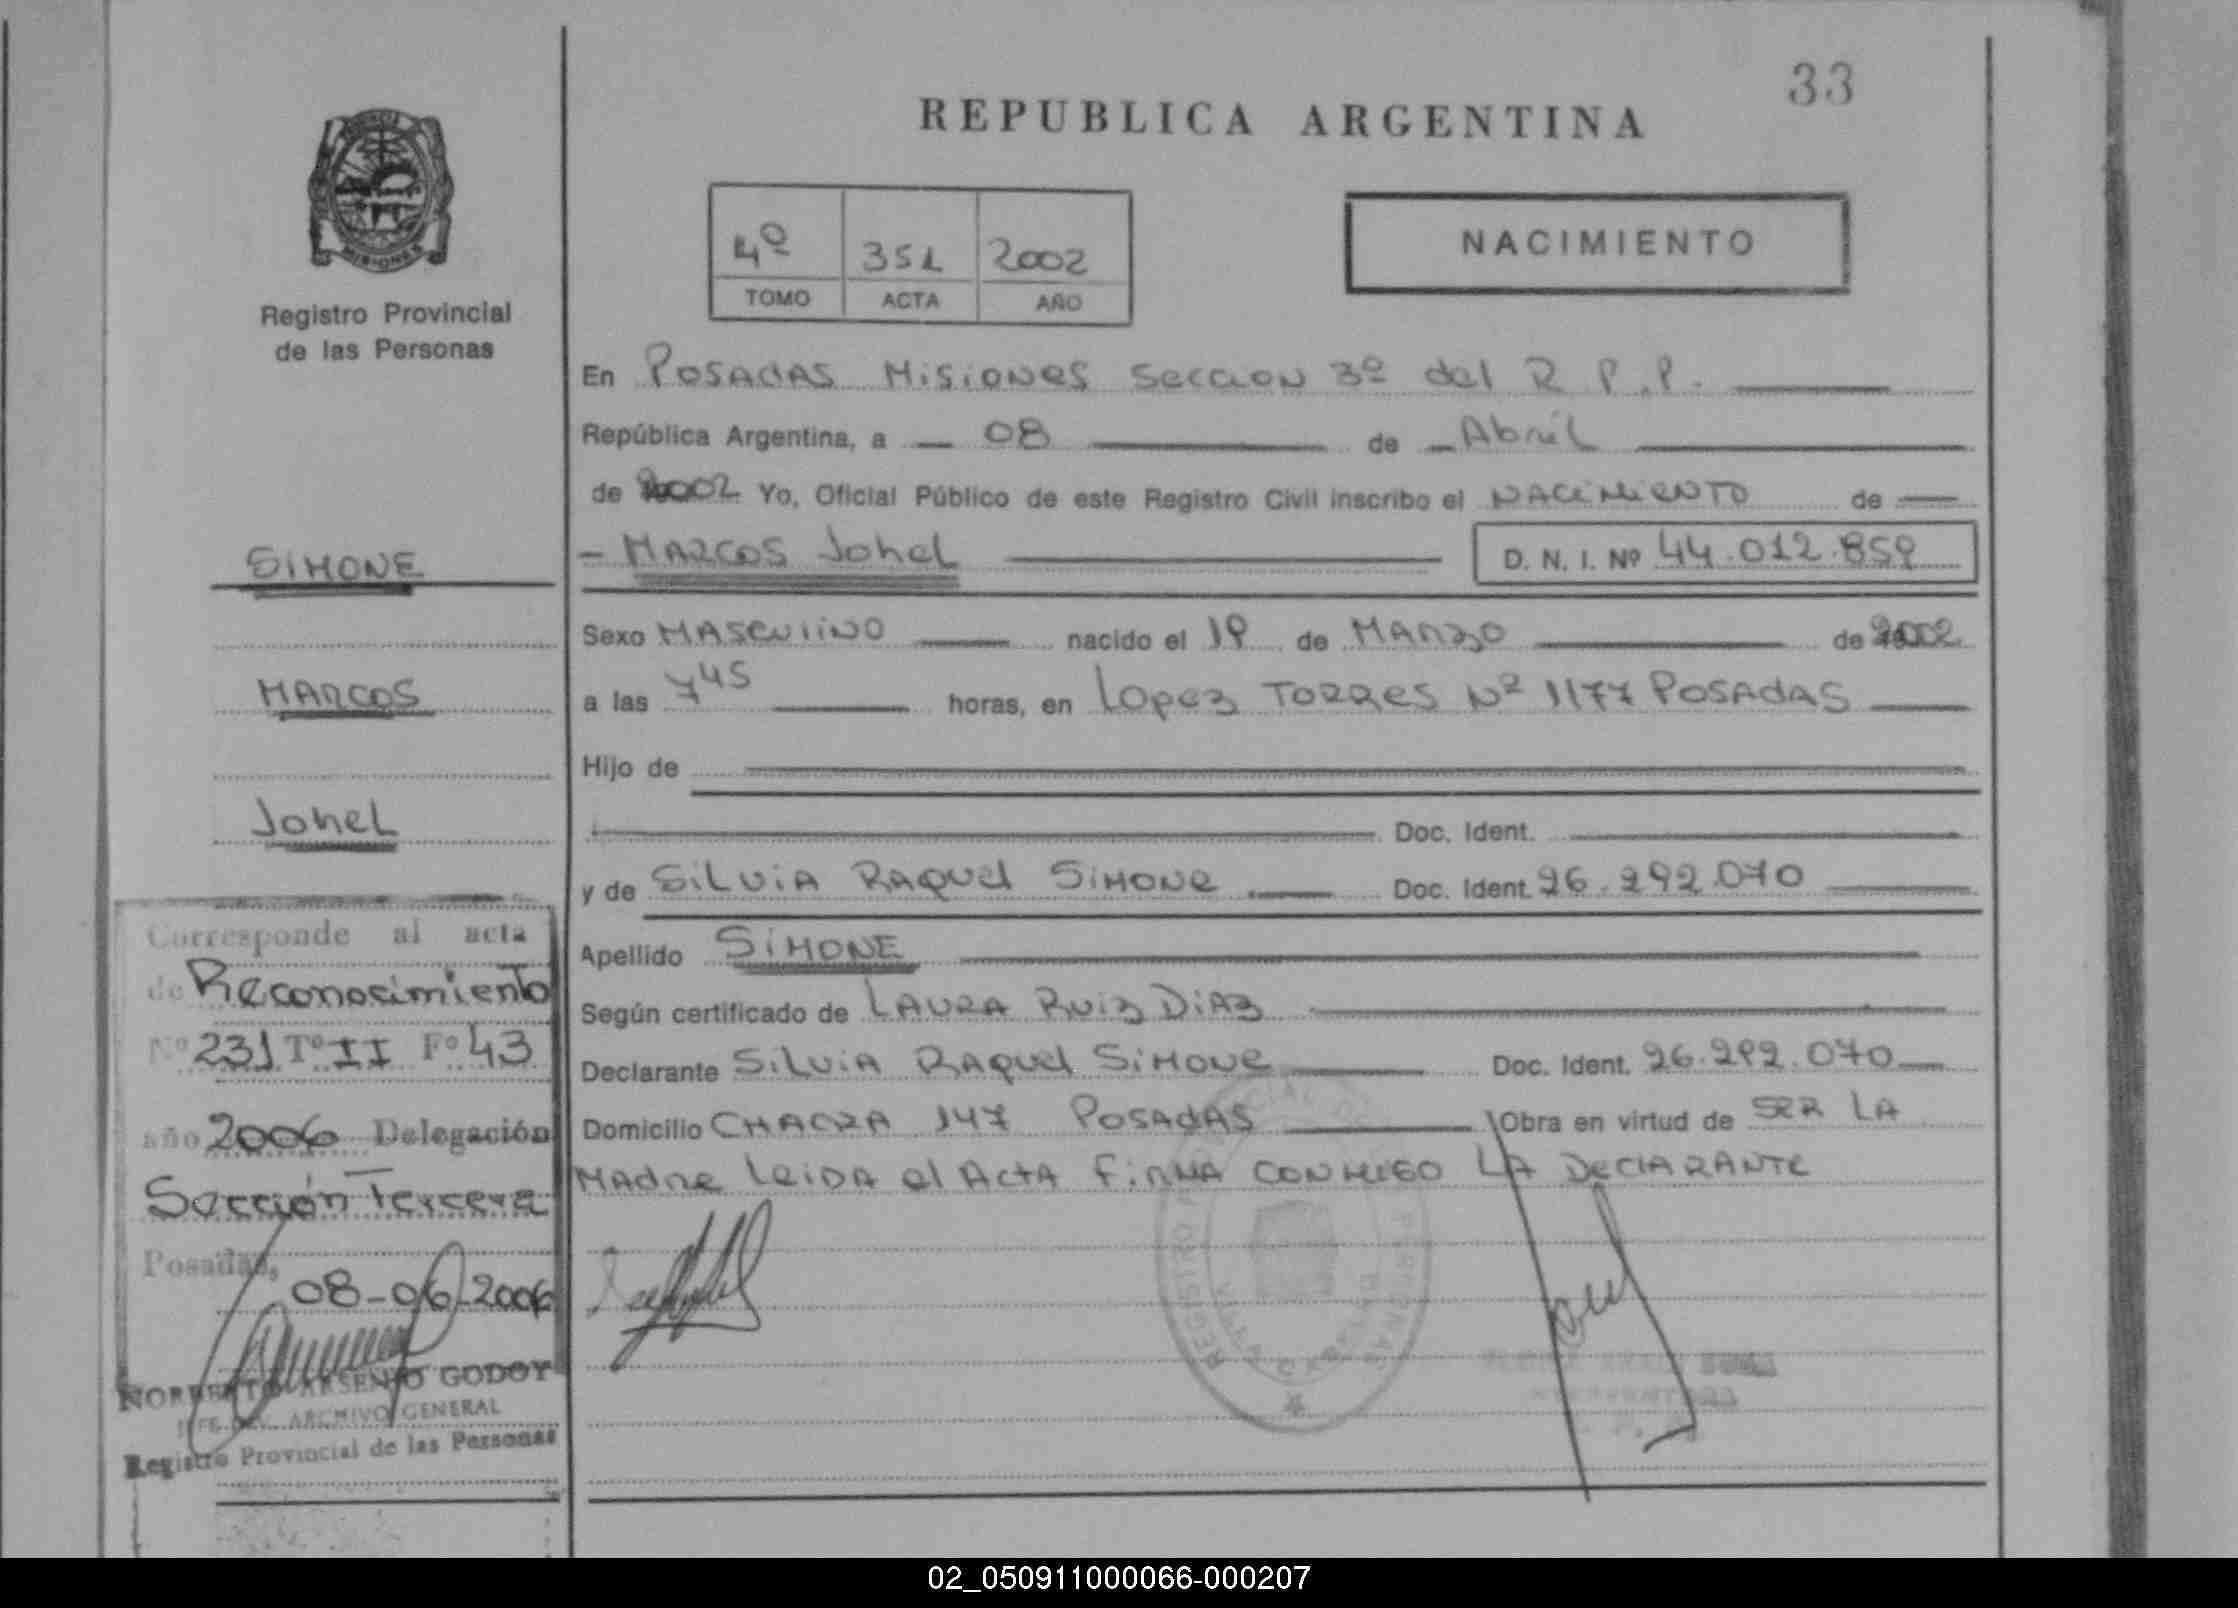 33
REPUBLICA ARGENTINA
MISIONES
Registro Provincial
de las Personas
4º 351 2002
TOMO ACTA AÑO
NACIMIENTO
En POSADAS MISIONES SECCION 3º del R P.P.
República Argentina, a 08 de Abril
de 2002 Yo, Oficial Público de este Registro Civil inscribo el NACIMIENTO de
MARCOS Johel D. N. I. Nº 44.012.859
Sexo MASCULINO nacido el 19 de MARZO de 2002
a las 7 45 horas, en Lopez TORRES Nº 1177 POSADAS
Hijo de
Doc. Ident.
y de SILVIA RAQUEL SIMONE Doc. Ident. 26.292.070
Apellido SIMONE
Según certificado de LAURA RUIZ DIAZ
Declarante SILVIA RAQUEL SIMONE Doc. Ident. 26.292.070
Domicilio CHACRA 147 POSADAS Obra en virtud de SER LA
MADRE LEIDA el ACTA FIRMA CONMIGO LA DECLARANTE
SIMONE
MARCOS
JoheL
Corresponde al acta
de Reconocimiento
Nº 231 Tº II Fº 43
año 2006 Delegación
Sección Tercera
Posadas,
08-06-2006
NORBERTO ARSENIO GODOY
ARCHIVO GENERAL
Registro Provincial de las Personas
02_050911000066-000207